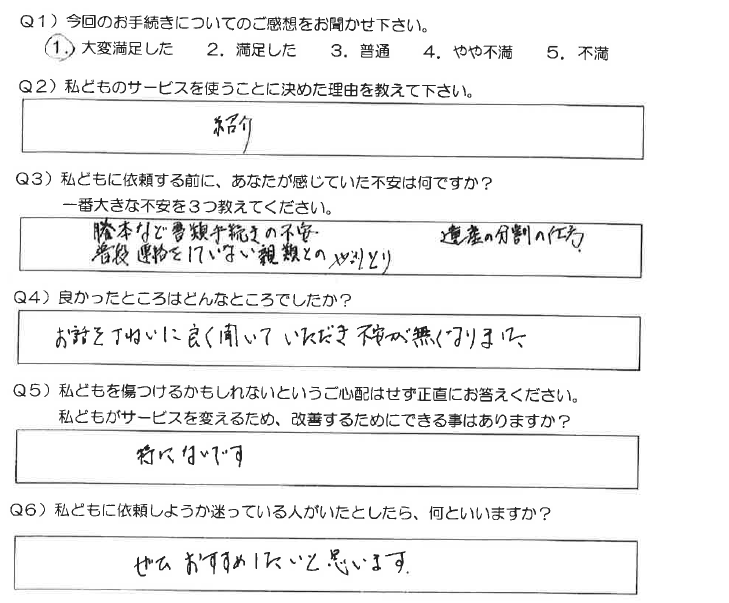 Q1）今回のお手続きについてのご感想をお聞かせ下さい。
1．大変満足した　2．満足した　3．普通　4．やや不満　5．不満
Q2）私どものサービスを使うことに決めた理由を教えて下さい。
紹介
Q3）私どもに依頼する前に、あなたが感じていた不安は何ですか？
一番大きな不安を3つ教えてください。
謄本など書類手続きの不安　遺産の分割の仕方
普段連絡をしていない親類とのやりとり
Q4）良かったところはどんなところでしたか？
お話を丁ねいに良く聞いていただき不安が無くなりました
Q5）私どもを傷つけるかもしれないというご心配はせず正直にお答えください。
私どもがサービスを変えるため、改善するためにできる事はありますか？
特にないです
Q6）私どもに依頼しようか迷っている人がいたとしたら、何といいますか？
ぜひおすすめしたいと思います。